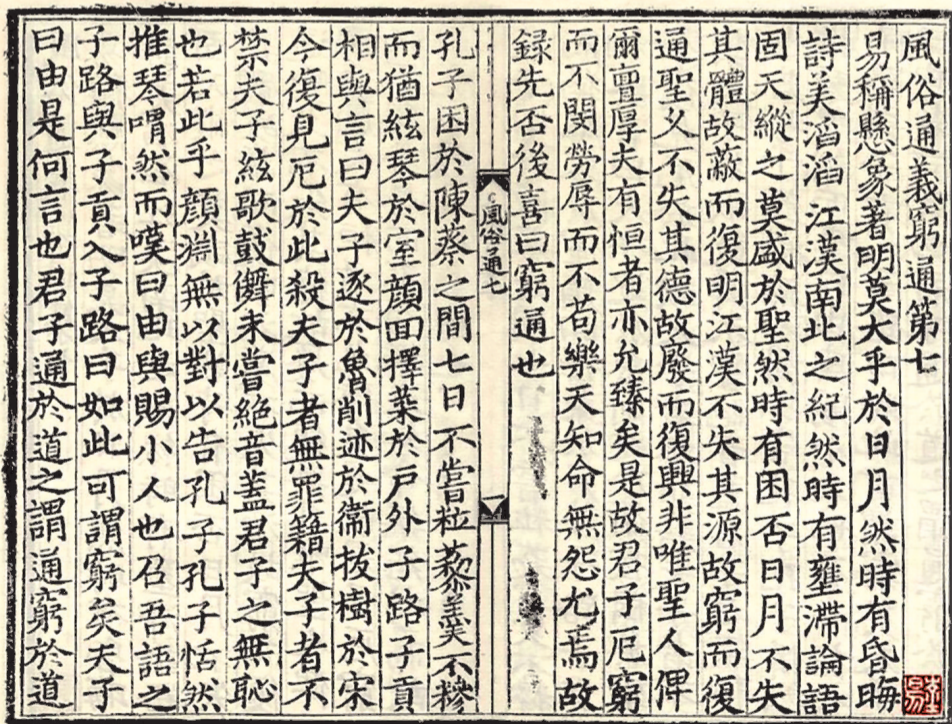 風俗通義窮通第七
易稱懸象著明莫大乎於日月然時有昏晦
詩美滔滔江漢南北之紀然時有壅滯論語
固天縱之莫盛於聖然時有困否日月不失
其體故蔽而復明江漢不失其源故窮而復
通聖人不失其德故廢而復興非唯聖人俾
爾亶厚夫有恒者亦允臻矣是故君子厄窮
而不閔勞辱而不苟樂天知命無怨尤焉故
録先否後喜曰窮通也
風俗通七
孔子困於陳蔡之間七日不嘗粒藜羹不糝
而猶絃琴於室顏回擇菜於戶外子路子貢
相與言曰夫子逐於魯削迹於衞拔樹於宋
今復見厄於此殺夫子者無罪籍夫子者不
禁夫子絃歌鼓儛未嘗絶音蓋君子之無恥
也若此乎顏淵無以對以告孔子孔子恬然
推琴喟然而嘆曰由與賜小人也召吾語之
子路與子貢入子路曰如此可謂窮矣夫子
曰由是何言也君子通於道之謂通窮於道